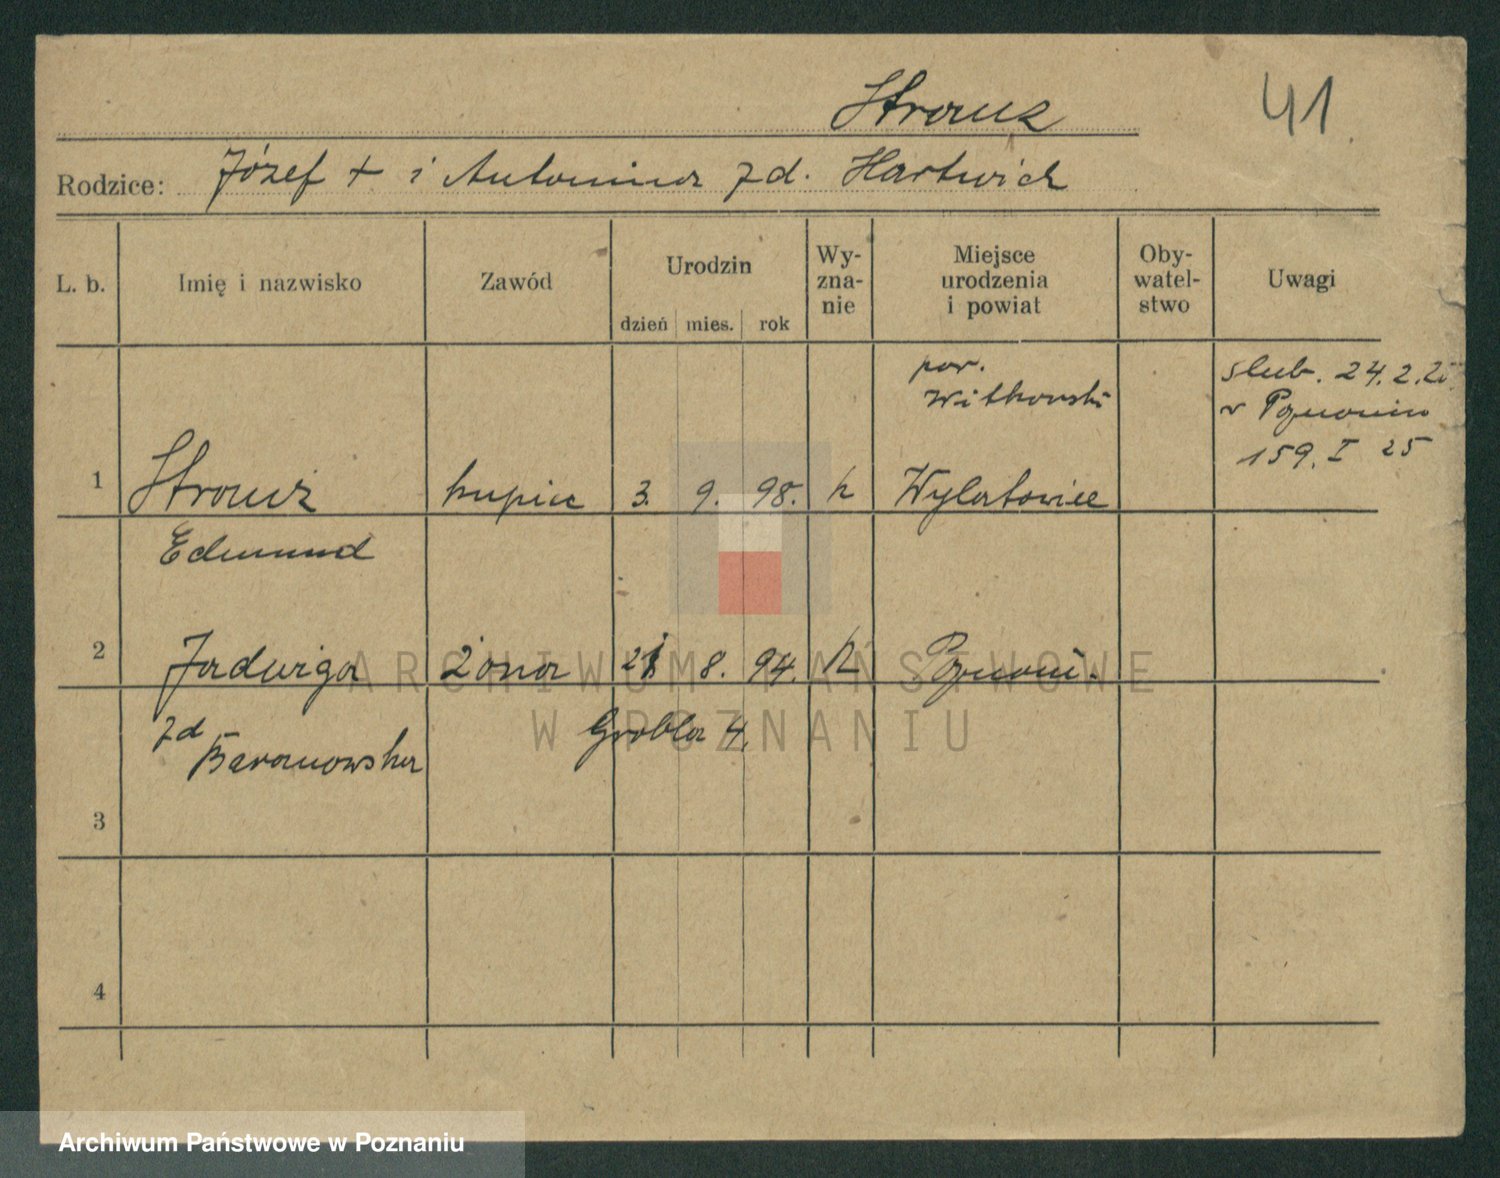 Strauz
41
Rodzice: Józef + i Antonina zd. Hartwich
L. b.
Imię i nazwisko
Zawód
Urodzin
dzień mies. rok
Wy-
zna-
nie
Miejsce
urodzenia
i powiat
Oby-
watel-
stwo
Uwagi
pow.
Witkowski
ślub. 24.2.2
w Poznaniu
159. I 25
1 kupiec 3. 9. 98. k Wylatowice
Edmund
2 Jadwiga żona 8. 94. k Poznań.
zd
Baranowska
Grobla 4.
3
4
ARCHIWUM PAŃSTWOWE
W POZNANIU
Archiwum Państwowe w Poznaniu